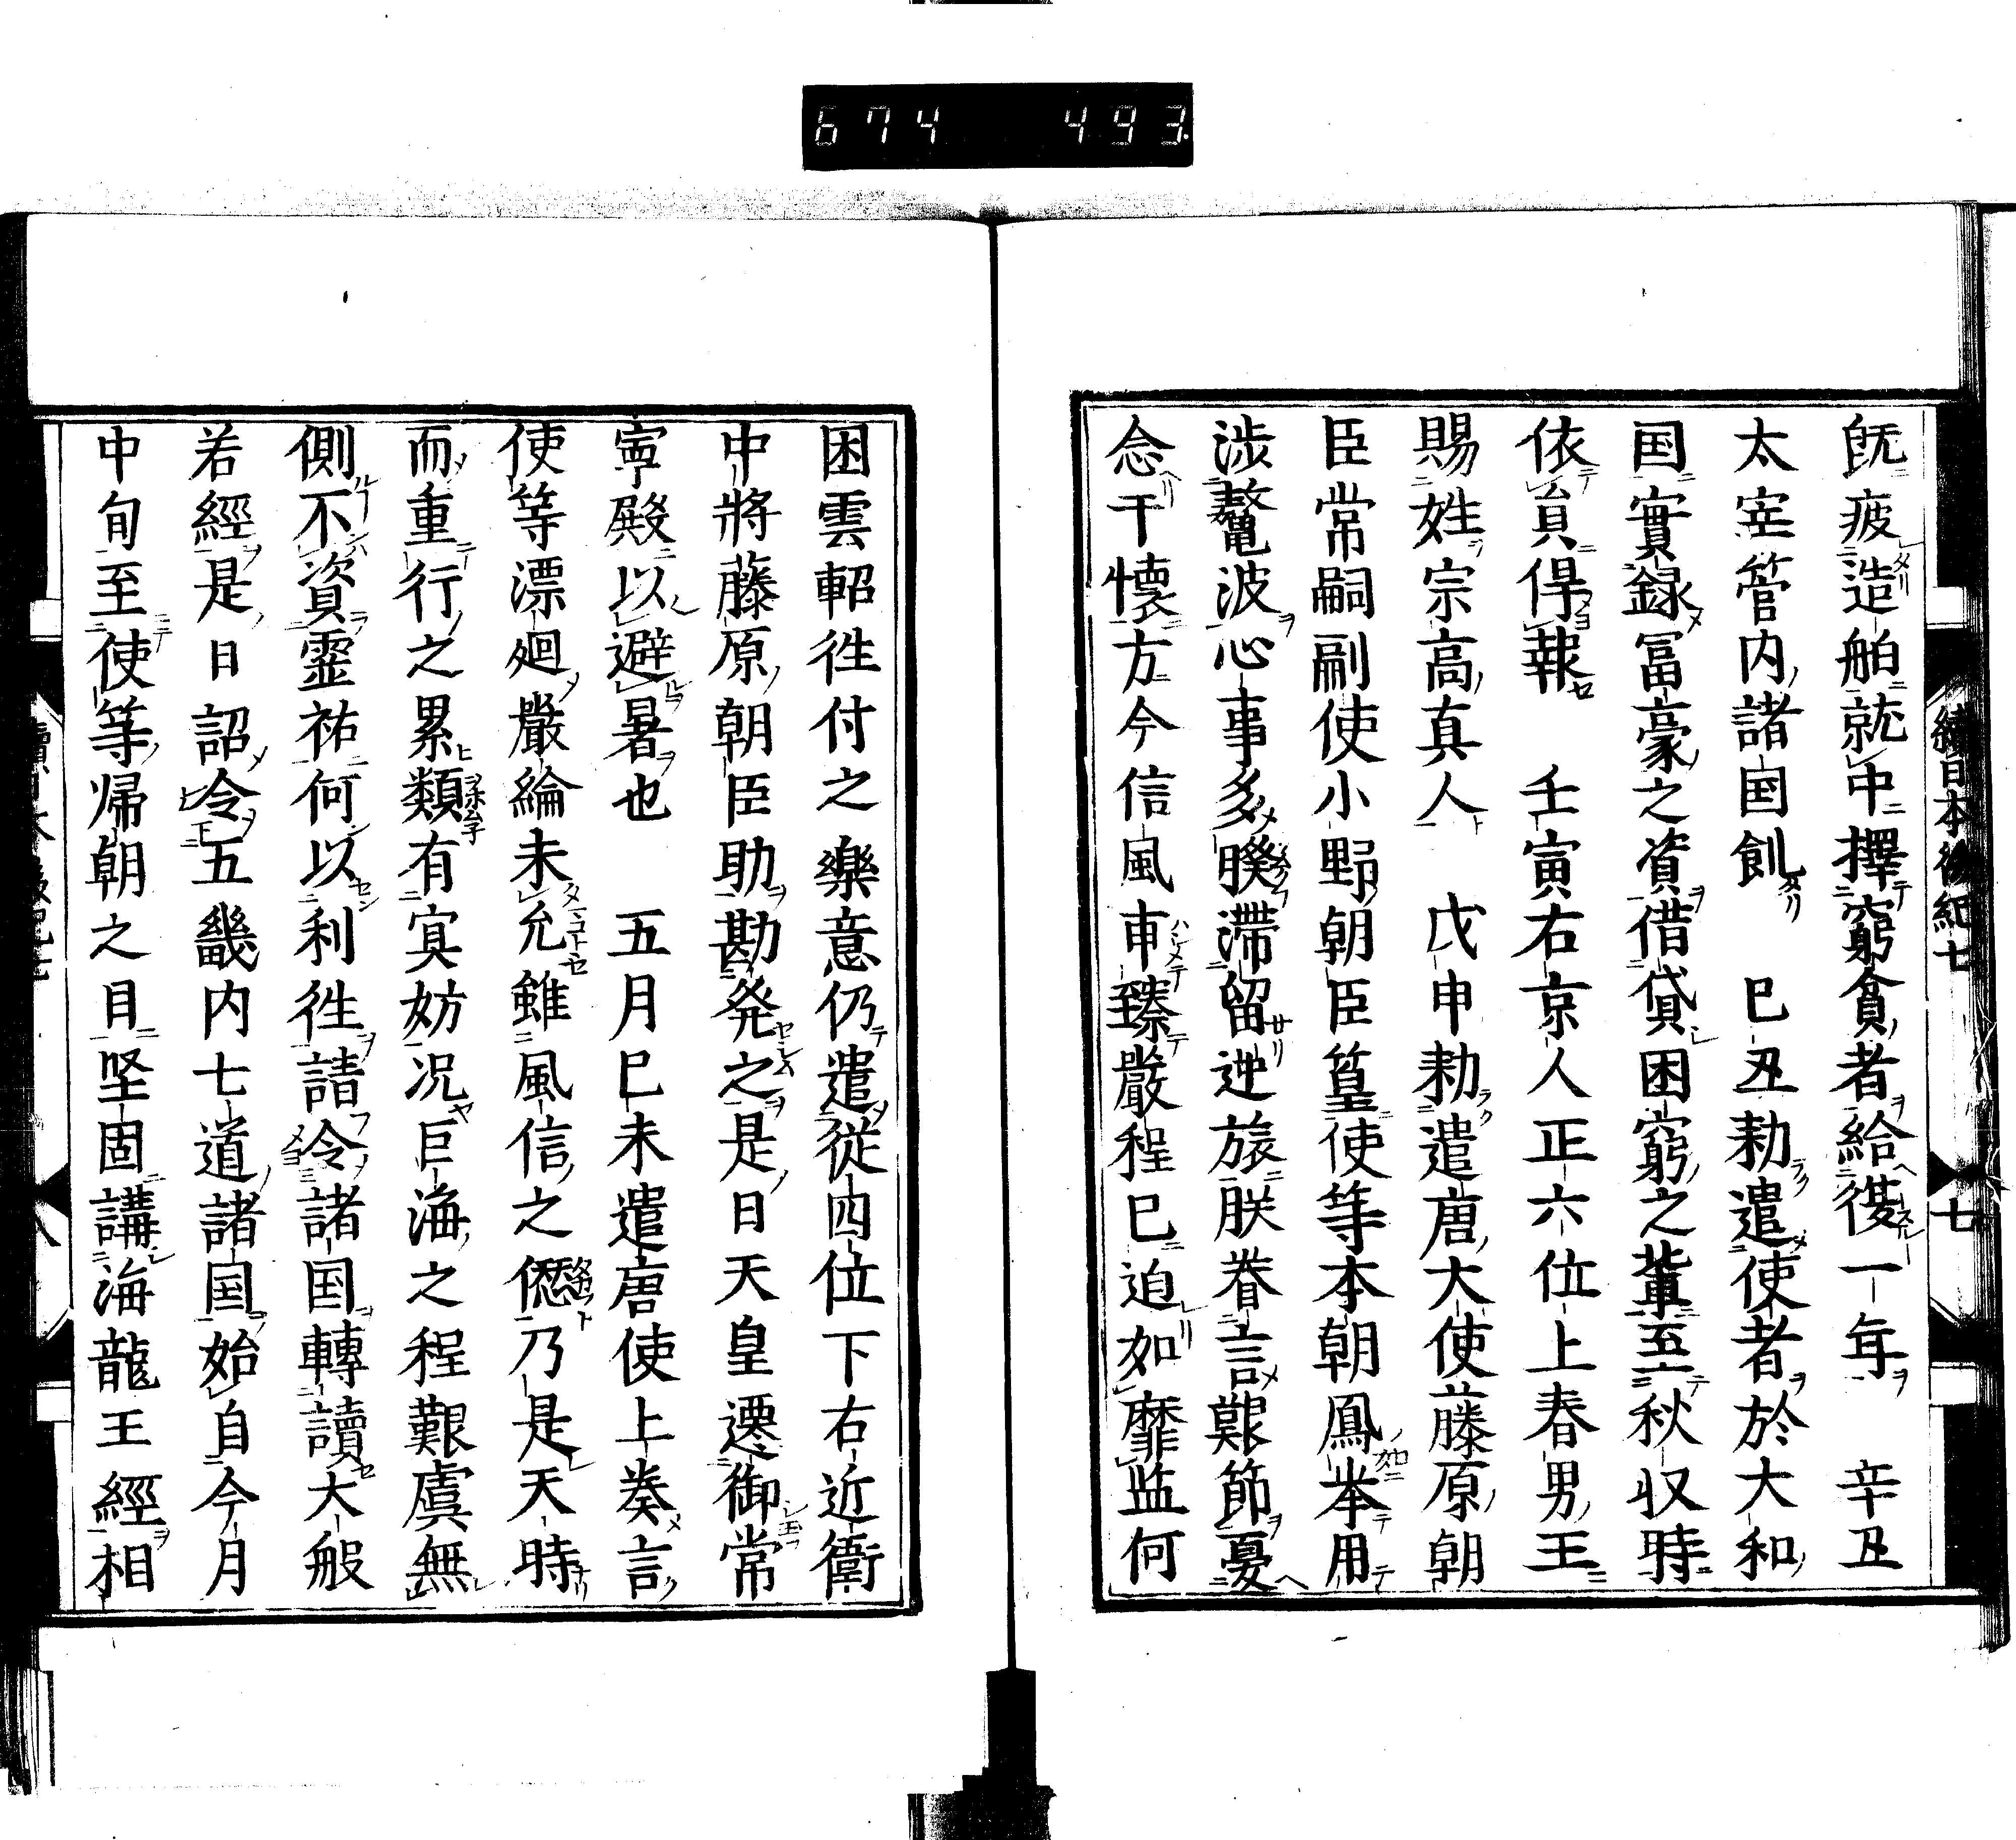 674 493
續日本後紀七
七
既疲造舶就中擇窮貧者給復一年 辛丑
太宰管内諸国飢 巳丑勅遣使者於大和
国實録冨豪之資借貸困窮之輩至秋収時
依員俾報 壬寅右京人正六位上春男王
賜姓宗高真人 戊申勅遣唐大使藤原朝
臣常嗣副使小野朝臣篁使等本朝鳳举用
渉鼇波心事多睽滞留逆旅朕眷言艱節憂
念干懐方今信風申臻嚴程已迫如靡監何
困雲軺徃付之樂意仍遣從四位下右近衛
中將藤原朝臣助勘発之是日天皇遷御常
寧殿以避暑也 五月巳未遣唐使上奏言
使等漂廻嚴綸未允雖風信之愆乃是天時
而重行之累類有冥妨况巨海之程艱虞無
側不資霊祐何以利徃請令諸国轉讀大般
若經是日詔令五畿内七道諸国始自今月
中旬至使等帰朝之日坚固講海龍王經相
八